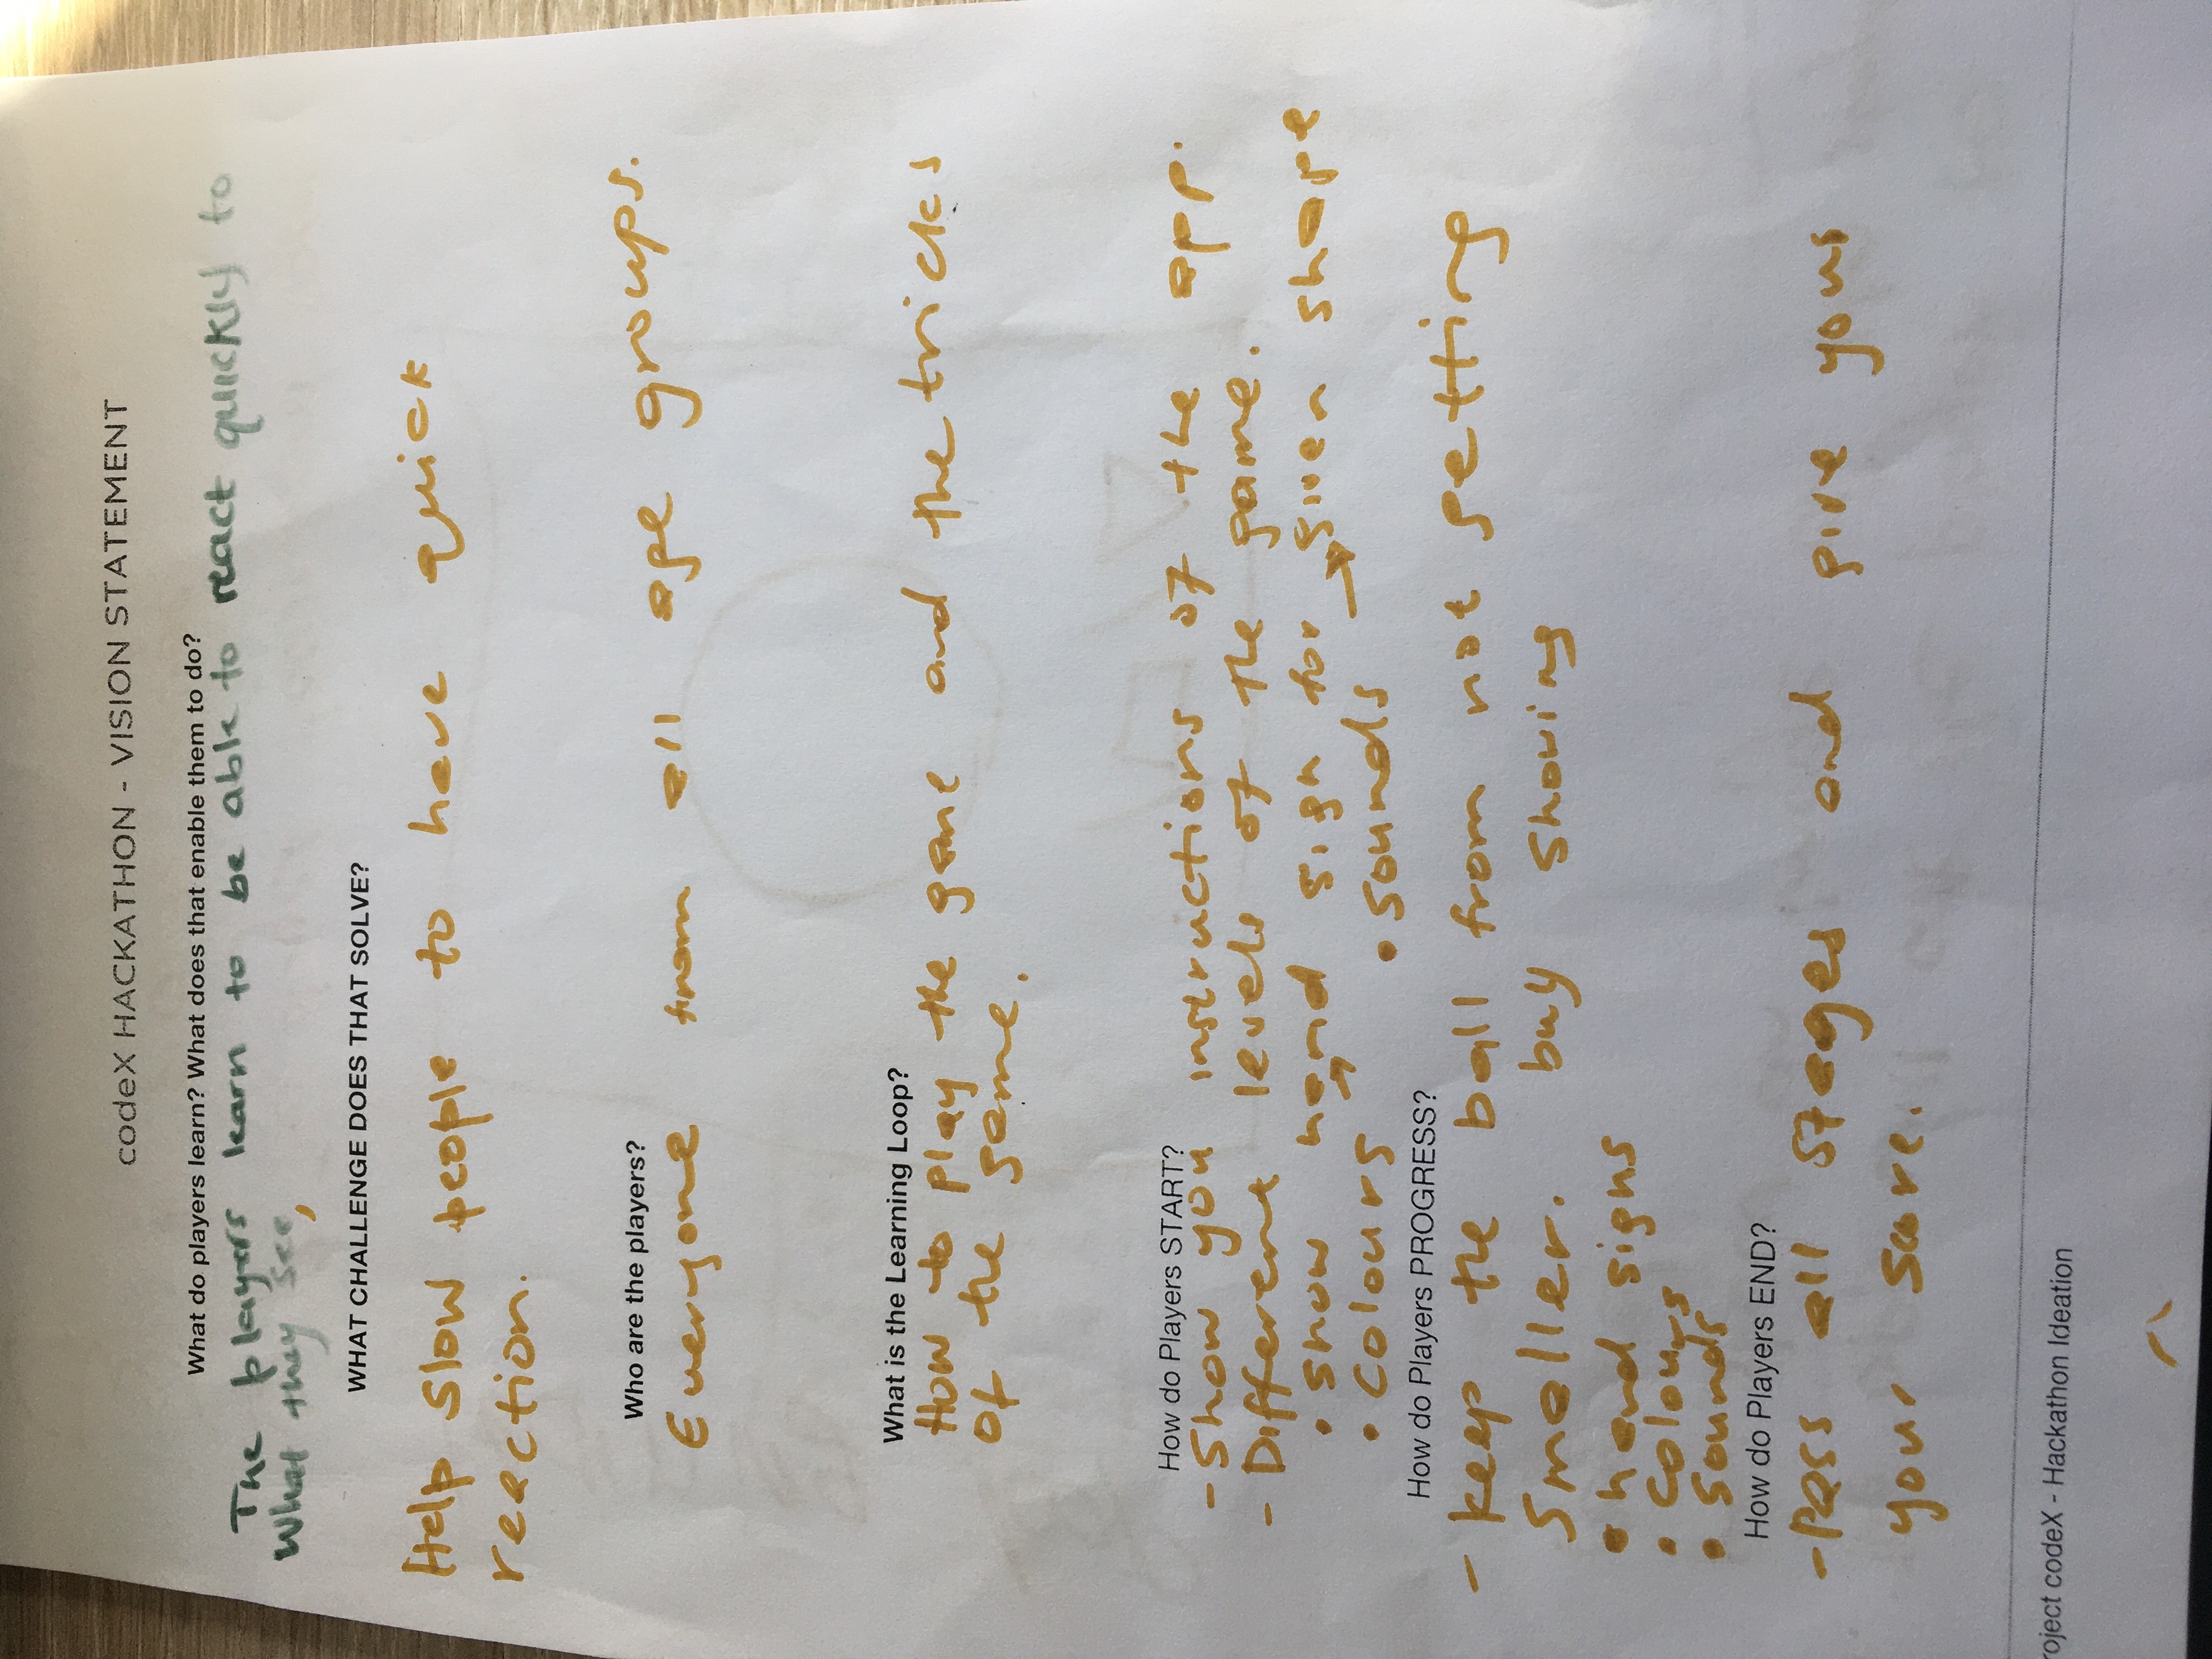 codeX HACKATHON - VISION STATEMENT
What do players learn? What does that enable them to do?
The players learn to be able to react quickly to
what they see,
WHAT CHALLENGE DOES THAT SOLVE?
Help slow people to have quick
reaction.
Who are the players?
Everyone from all age groups.
What is the Learning Loop?
How to play the game and the tricks
of the game.
How do Players START?
- Show you instructions of the app.
- Different levels of the game.
• show hand sign for given shape
• Colours → • sounds →
How do Players PROGRESS?
- keep the ball from not getting
smaller. buy showing
• hand signs
• Colours
• Sounds
How do Players END?
- Pass all stages and give your
your score.
roject codeX - Hackathon Ideation